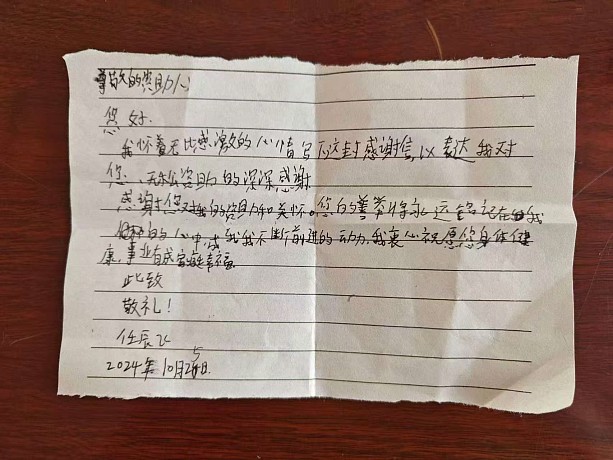 尊敬的资助人
您好.
我怀着无比感激的心情写下这封感谢信,以表达我对
您 无私资助的深深感谢
感谢您对我的资助和关怀。您的善举将永远铭记在我
的心中成我不断前进的动力,我衷心祝愿您身体健
康,事业有成家庭幸福
此致
敬礼!
任辰
2024年10月25日.